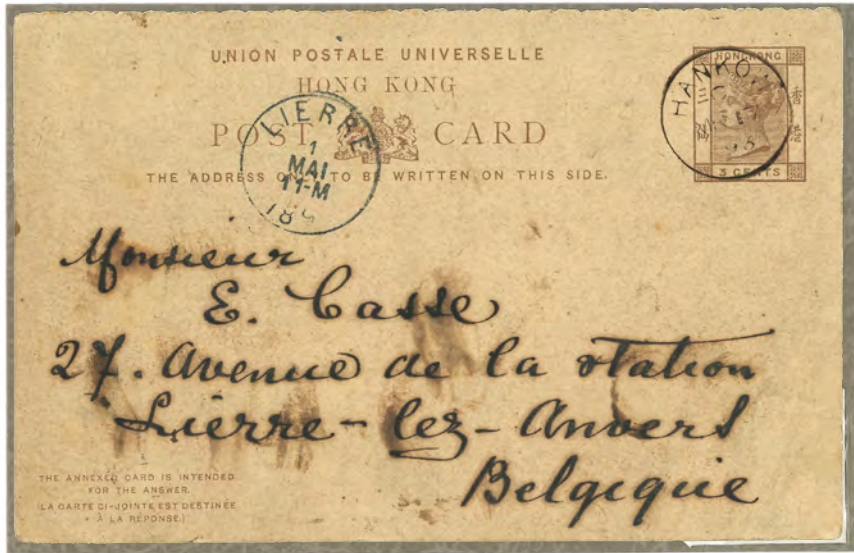 UNION POSTALE UNIVERSELLE
HONG KONG
POST CARD
THE ADDRESS ONLY TO BE WRITTEN ON THIS SIDE.
HONG KONG
香港
3 CENTS
HANKOW
LIERRE
1
MAI
11-M
Monsieur
E. Casse
27. Avenue de la station
Lierre-lez-Anvers
Belgique
THE ANNEXED CARD IS INTENDED
FOR THE ANSWER.
(LA CARTE CI-JOINTE EST DESTINÉE
À LA RÉPONSE.)